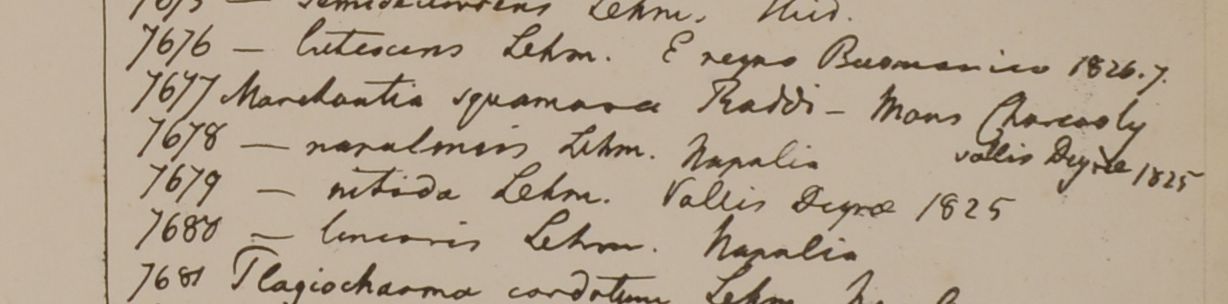 7675 — semidecurrens Lehm. Ibid.
7676 — lutescens Lehm. E regno Burmanico 1826.7.
7677 Marchantia squamosa Raddi — Mons
vallis Deyrae 1825
7678 — napalensis Lehm. Napalia
7679 — nitida Lehm. Vallis Deyrae 1825
7680 — linearis Lehm. Napalia
7681 Plagiochasma cordatum Lehm.